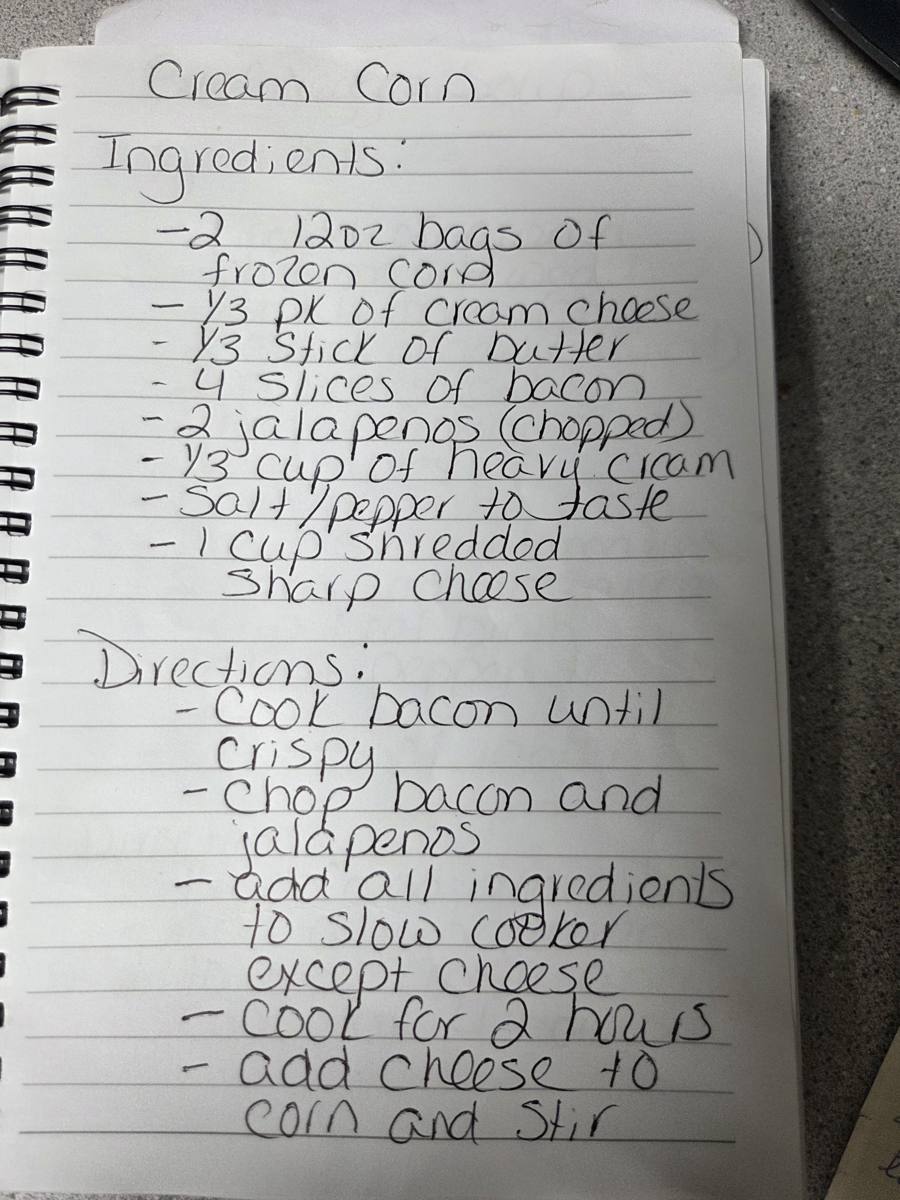 Cream Corn
Ingredients:
-2 12oz bags of
frozen corn
- 1/3 pk of cream cheese
- 1/3 stick of butter
- 4 slices of bacon
- 2 jalapenos (chopped)
- 1/3 cup of heavy cream
- Salt/pepper to taste
- 1 cup shredded
sharp cheese
Directions:
- Cook bacon until
crispy
- Chop bacon and
jalapenos
- add all ingredients
to slow cooker
except cheese
- Cook for 2 hours
- add cheese to
corn and stir